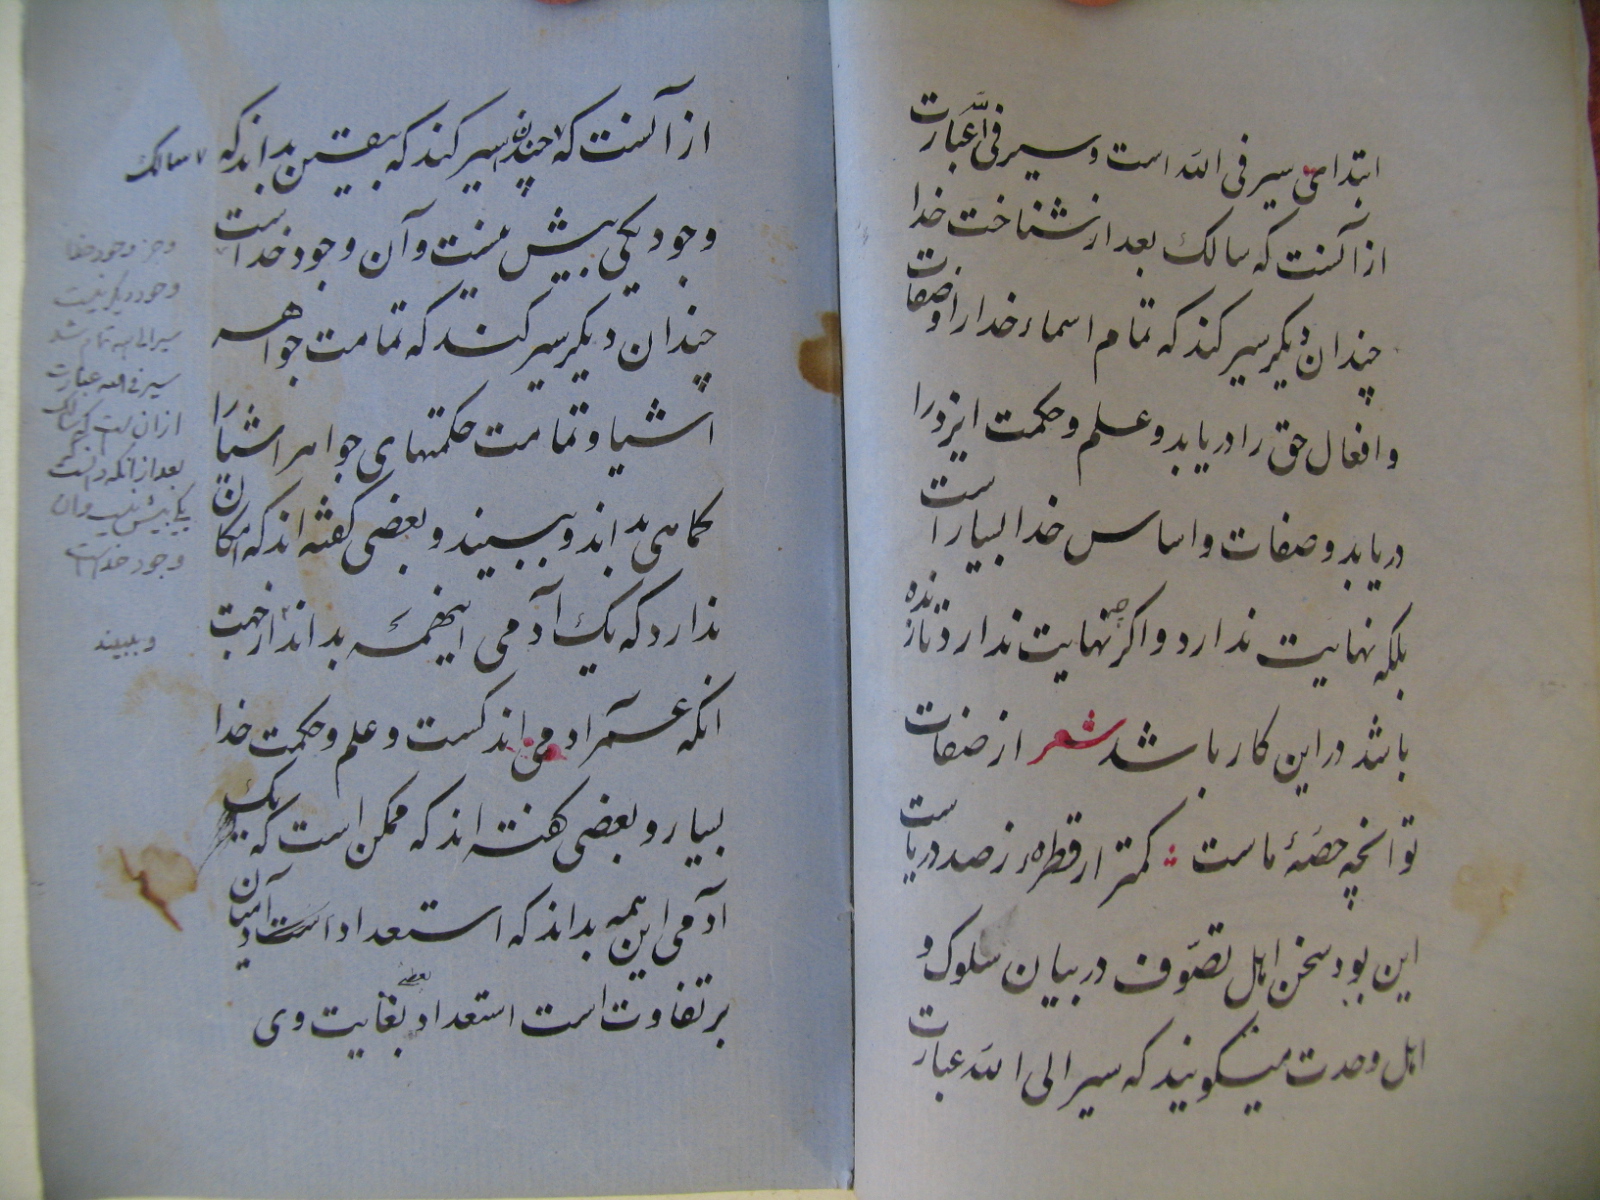 ابتدای سیر فی الله است و سیر فی الله عبارت
از آنست که سالک بعد از شناخت خدا
چندان دیگر سیر کند که تمام اسماء خدا را و صفات
و افعال حق را دریابد و علم و حکمت ایزد را
دریابد و صفات و اساس خدا بسیار است
بلکه نهایت ندارد و اگر چه نهایت ندارد تا زنده
باشد در این کار باشد شعر از صفات
تو آنچه حصهٔ ماست کمتر از قطره ز صد دریاست
این بود سخن اهل تصوّف در بیان سلوک و
اهل وحدت میگویند که سیر الی الله عبارت
از آنست که چندان سیر کند که بیقین بداند که
وجود یکی بیش نیست و آن وجود خداست
چندان دیگر سیر کند که تمامت جواهر
اشیا و تمامت حکمتهای جواهر اشیا را
کماهی بداند و ببیند و بعضی گفته اند که امکان
ندارد که یک آدمی اینهمه بداند از جهت
انکه عمر آدمی اندکست و علم و حکمت خدا
بسیار و بعضی گفته اند که ممکن است که یک
آدمی این همه بداند که استعداد آدمیان
بر تفاوت است استعداد بعضی بغایت وی
سالک
و جز وجود خدا
وجود دیگر نیست
سیر الی الله تمام شد
سیر فی الله عبارت
از آن است که سالک
بعد از آنکه دانست
یکی بیش نیست و آن
وجود خداست
و ببیند